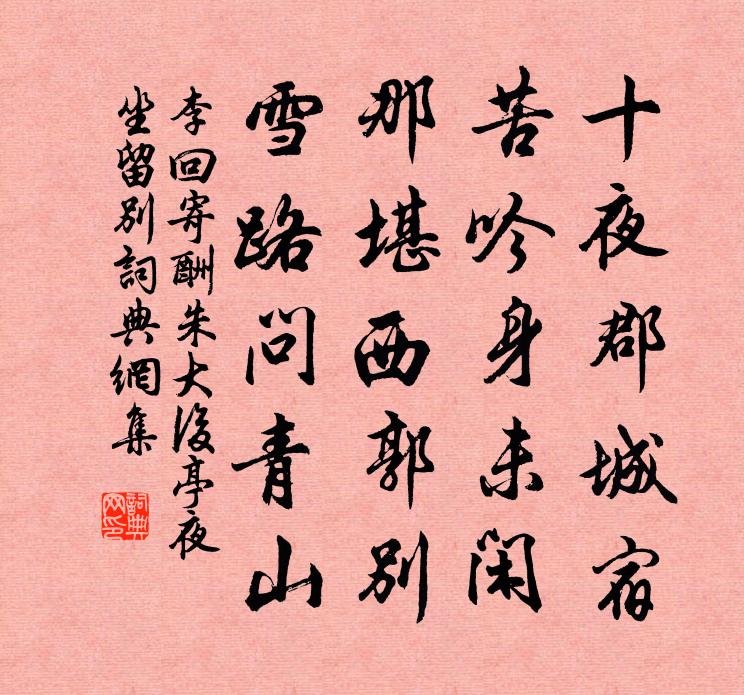 十夜郡城宿
苦吟身未閑
那堪西郭別
雪路問青山
李回寄酬朱大後亭夜
坐留別詞典網集
詞典
网印